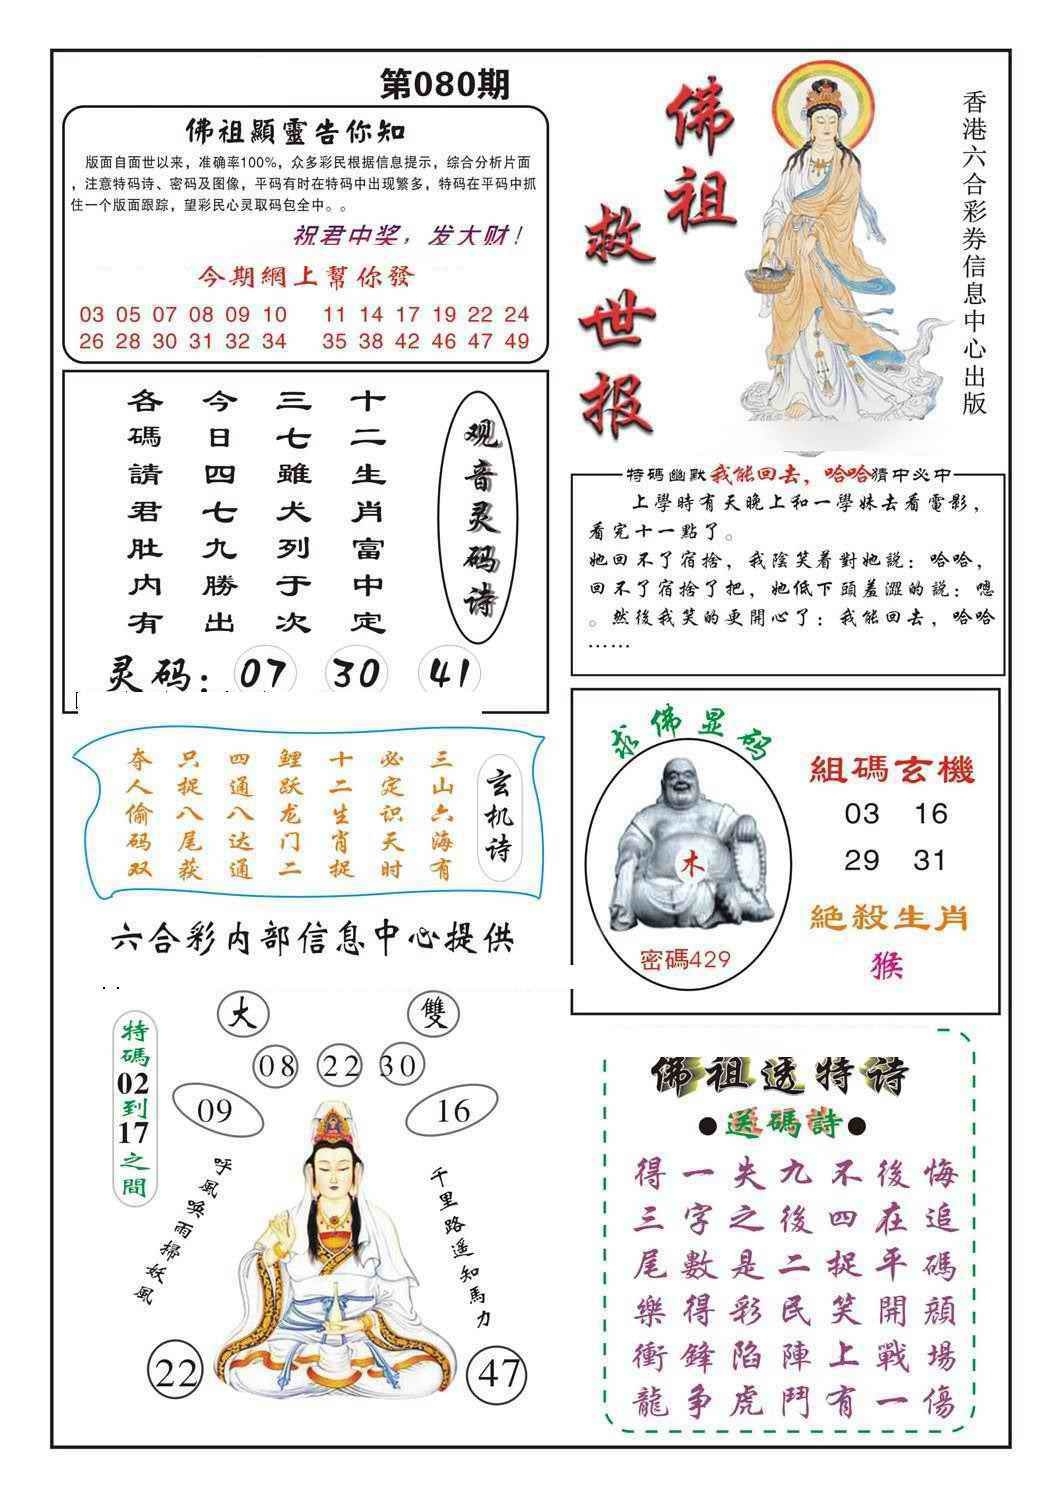 第080期
佛祖顯靈告你知
版面自面世以来，准确率100%，众多彩民根据信息提示，综合分析片面
，注意特码诗、密码及图像，平码有时在特码中出现繁多，特码在平码中抓
住一个版面跟踪，望彩民心灵取码包全中。。
祝君中奖，发大财！
今期網上幫你發
03 05 07 08 09 10 11 14 17 19 22 24
26 28 30 31 32 34 35 38 42 46 47 49
佛祖
救世报
香港六合彩券信息中心出版
观音灵码诗
十二生肖富中定
三七雖犬列于次
今日四七九勝出
各碼請君肚内有
灵码：07 30 41
特碼幽默我能回去，哈哈猜中必中
上學時有天晚上和一學妹去看電影，
看完十一點了。
她回不了宿捨，我陰笑着對她説：哈哈，
回不了宿捨了把，她低下頭羞澀的説：嗯
。然後我笑的更開心了：我能回去，哈哈
……
玄机诗
三山六海有
必定识天时
十二生肖捉
鲤跃龙门二
四通八达通
只捉八尾获
夺人偷码双
六合彩内部信息中心提供
求佛显码
木
密碼429
組碼玄機
03 16
29 31
絕殺生肖
猴
特碼02到17之間
大
雙
08 22 30
09
16
呼風喚雨掃妖風
千里路遥知馬力
22
47
佛祖透特诗
●送碼詩●
得一失九不後悔
三字之後四在追
尾數是二捉平碼
樂得彩民笑開顔
衝鋒陷陣上戰場
龍争虎鬥有一傷